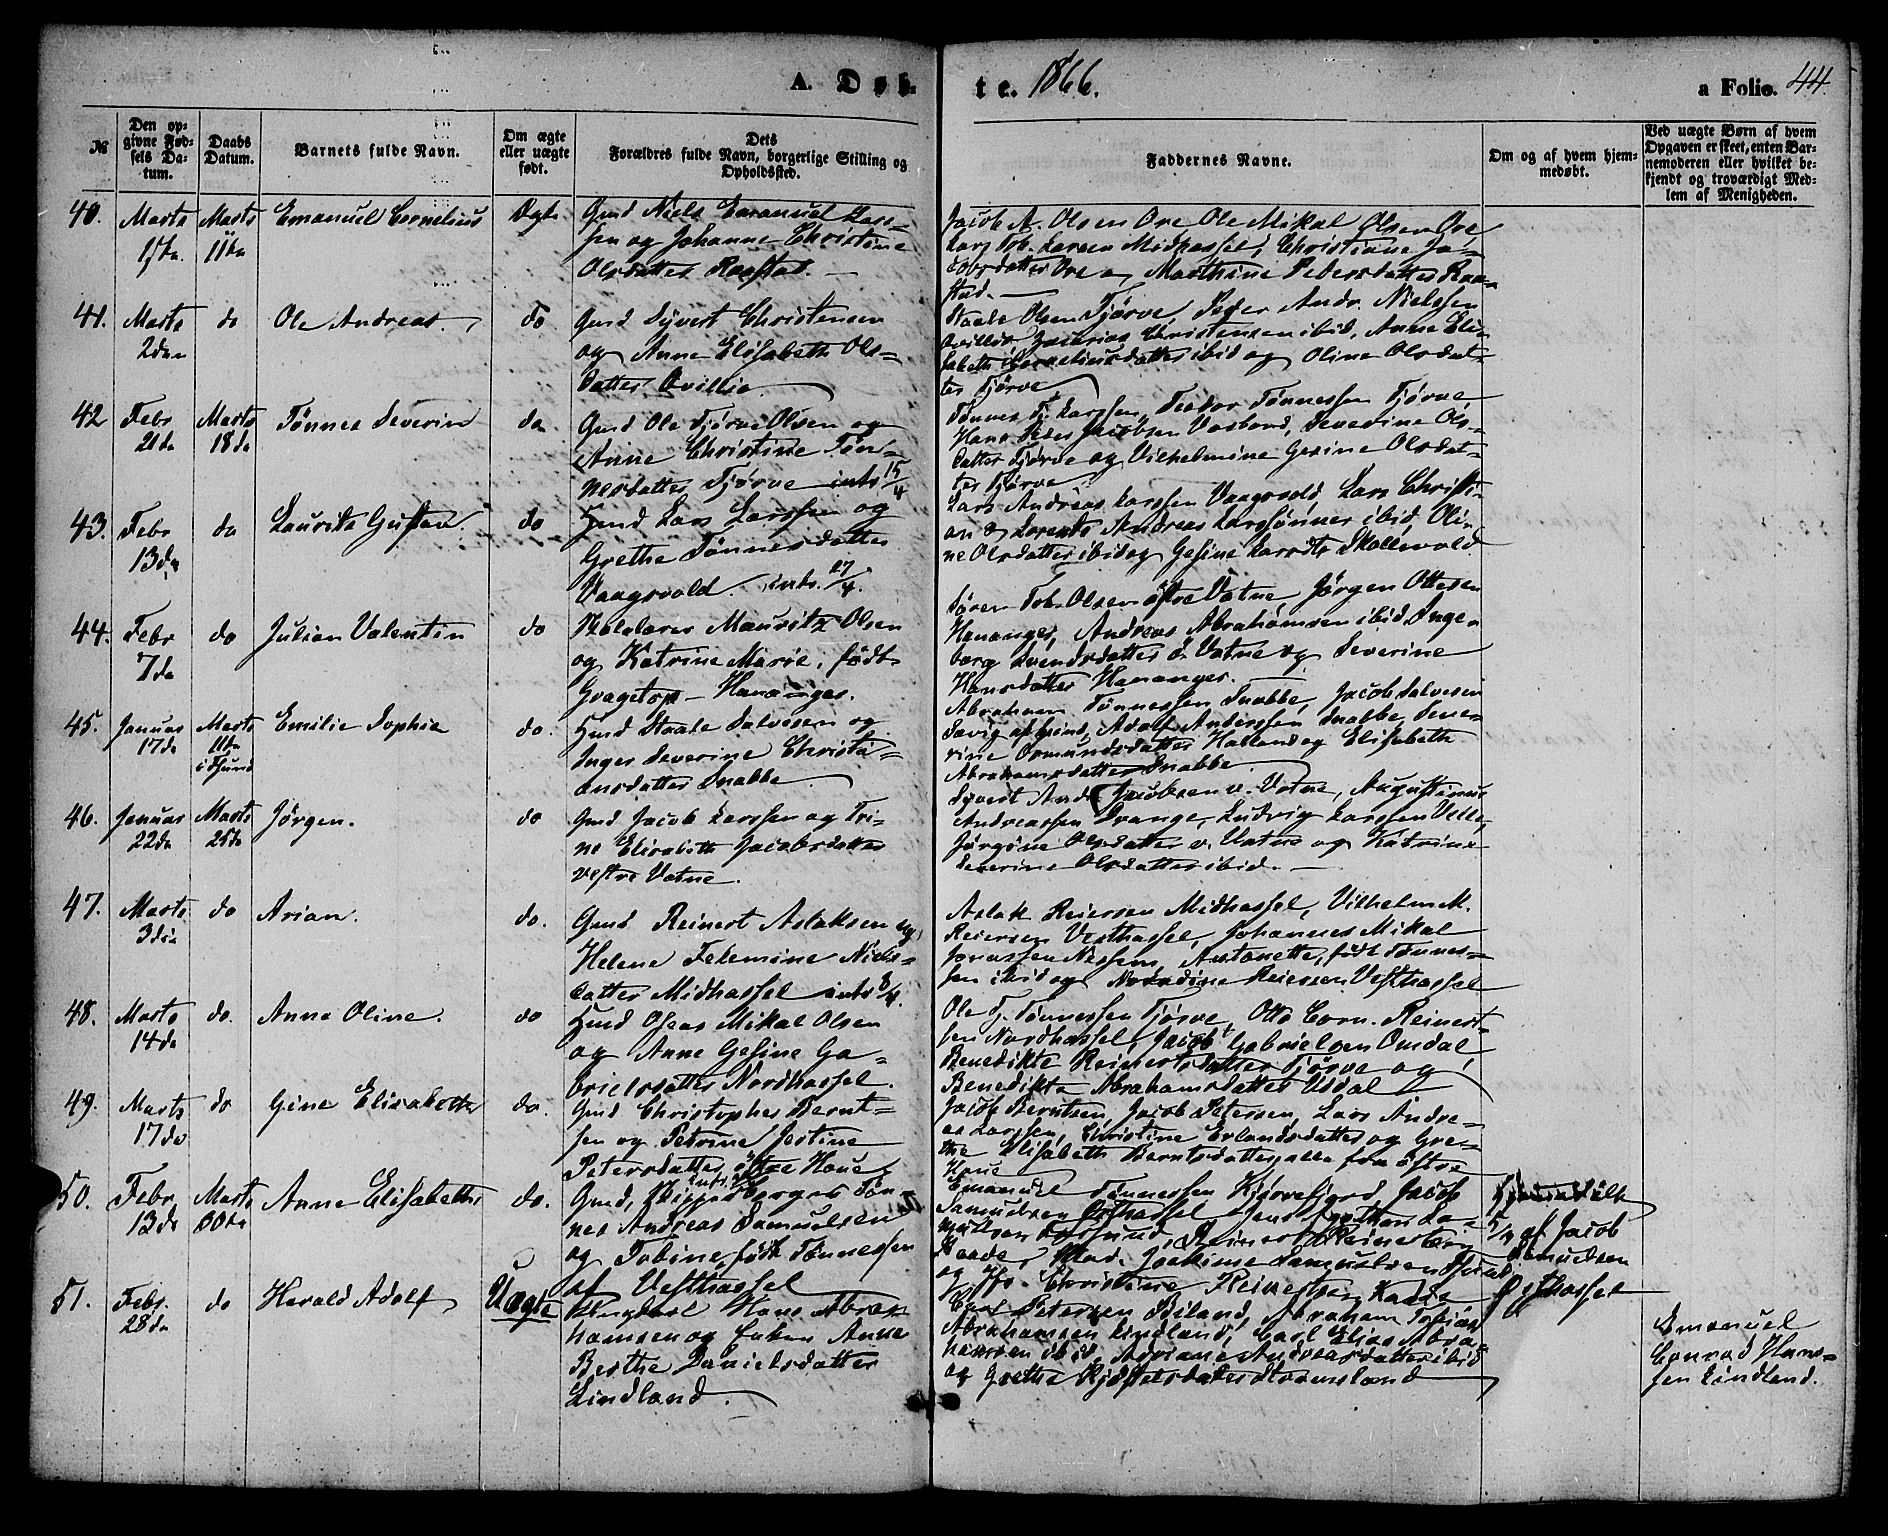 A. Døb-
te. 1866.
a Folio. 44.
№
Den op-
givne Fød-
sels Da-
tum.
Daabs
Datum.
Barnets fulde Navn.
Om ægte
eller uægte
født.
Dets
Forældres fulde Navn, borgerlige Stilling og
Opholdssted.
Faddernes Navne.
Om og af hvem hjem-
medøbt.
Ved uægte Børn af hvem
Opgaven er skeet, enten Bar-
nemoderen eller hvilket be-
kjendt og troværdigt Med-
lem af Menigheden.
40.
Marts
Marts
11te
Emanuel Cornelius
Ægte
Gmd Niels Emanuel Lars-
sen og Johanne Christine
Olsdatter Raastad.
Jacob A. Olsen Ore, Ole Mikal Olsen Ore,
Lars Tob. Larsen Midhassel, Christiane Ja-
cobsdatter Ore og Marthine Pedersdatter Raa-
stad.
41.
Marts
2den
do
Ole Andreas.
do
Gmd Syvert Christensen
og Anne Elisabeth Ols-
datter Qvillie.
Staale Olsen Tjørve, Peder Andr. Nielssen
Qvillie, Zacharias Christensen ibid, Anne Eli-
sabeth Corneliusdatter ibid og Oline Olsdat-
ter Tjørve
42
Febr
21de
Marts
18de
Tønnes Severin
do
Gmd Ole Tjørve Olsen og
Anne Christine Tøn-
nesdatter Tjørve intr 15/4
Tønnes Tj. Larssen, Teodor Tønnessen Tjørve
Hans Peder Jacobsen Vasbord, Severine Ols-
datter Tjørve og Vilhelmine Gesine Olsdat-
ter Tjørve
43.
Febr
13de
do
Laurits Gustav.
do
Hmd Lars Larssen og
Grethe Tønnesdatter
Vaagsvold. intr. 27/4.
Lars Andreas Larssen Vaagsvold, Lars Christi-
an & Lorents Andreas Larssønner ibid, Oli-
ne Olsdatter ibid og Gesine Larsdtr Skollevold
44.
Febr
7de
do
Julian Valentin
do
Skolelærer Mauritz Olsen
og Katrine Marie, født
Gragetop - Hananger.
Søren Tob. Olsen østre Vatne, Jørgen Ottesen
Hananger, Andreas Abrahamsen ibid, Inge-
borg Svendsdatter ø. Vatne og Severine
Hansdatter Hananger.
45.
Januar
17de
Marts
11te
i Fsund
Emilie Sophie
do.
Hmd Staale Salvesen og
Inger Severine Christi-
ansdatter Snabbe
Abraham Tønnessen Snabbe, Jacob Salvesen
Adolf Anderssen Snabbe, Seve-
rine Osmundsdatter Halland og Elisabeth
Abrahamsdatter Snabbe.
46.
Januar
22de
Marts
25de
Jørgen.
do
Gmd Jacob Larssen og Tri-
ne Elisabeth Jacobsdatter
vestre Vatne.
Syvert Andr. Jacobsen v. Vatne, Augustinus
Andreassen Drange, Ludvig Larssen Velle,
Jørgine Olsdatter v. Vatne og Katrine
Severine Olsdatter ibid.
47.
Marts
3die
do
Arian.
do.
Gmd Reinert Aslaksen og
Helene Felemine Niels-
datter Midhassel intr 8/4.
Aslak Reiersen Midhassel, Vilhelm M.
Reiersen Vesthassel, Johannes Mikal
Jonassen Nessem, Antonette, født Tønnes-
sen ibid og Reiersen Vesthassel
48.
Marts
14de
do.
Anne Oline.
do
Hmd Oseas Mikal Olsen
og Anne Gesine Ga-
brielsdatter Nordhassel.
Ole T. Tønnessen Tjørve, Otto Corn. Reinert-
sen Nordhassel, Jacob Gabrielsen Omdal,
Benedikte Reinertsdatter Tjørve og
Benedikte Abrahamsdatter Usdal
49.
Marts
17de
do
Gine Elisabeth
do.
Gmd Christopher Bernt-
sen og Petrine Jestine
Petersdatter østre Haue
Jacob Berntsen, Jacob Petersen, Lars Andre-
as Larssen, Christine Erlandsdatter og Gre-
the Elisabeth Berntsdatter, alle fra østre
Haue
50.
Febr
13de
Marts
30te
Anne Elisabeth
do.
Gmd, Tøn-
nes Andreas Samuelsen
og Tobine, født Tønnessen
af Vesthassel
Emanuel Tønnessen Kjørrefjord, Jacob
Samuelsen Østhassel, Jens Sa-
muelsen Farsund, Reinert
Kaade,
og Christine
Hjemmedøbt
af Jacob
Samuelsen
Østhassel
51.
Febr.
28de
do
Harald Adolf
Uægte
Ungkarl Hans Abra-
hamsen og Enken Anne
Berthe Danielsdatter
Lindland.
Carl Petersen Abraham Tobias
Abrahamsen Lindland, Carl Elias Abra-
hamsen ibid, Adriane Andreasdatter ibid
og Grethe
Emanuel
Conrad Hans-
sen Lindland.